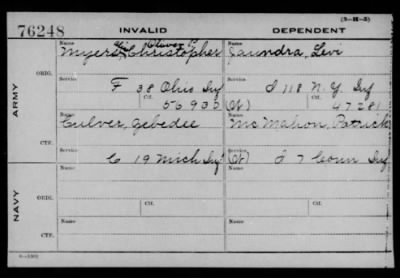 (3-H-3)
76248 INVALID DEPENDENT
Name Name
Myers, Christopher Saundra, Levi
ORIG.
Service Service
F 38 Ohio Inf I 118 N. Y. Inf
Ctf. Ctf.
ARMY
56900 (W) 47281
Name Name
Culver, Zebedee McMahon, Patrick
CTF.
Service Service
C 19 Mich Inf (W) I 7 Conn Inf
Name Ctf. Name Ctf.
ORIG.
NAVY
Name Name
CTF.